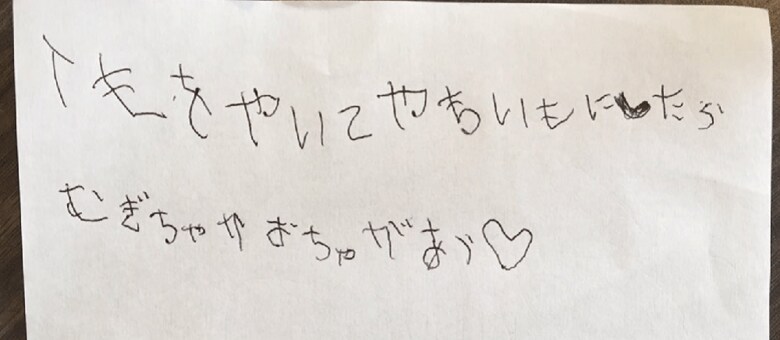 いもをやいてやちいもにしたら
むぎちゃかおちゃがあう♡